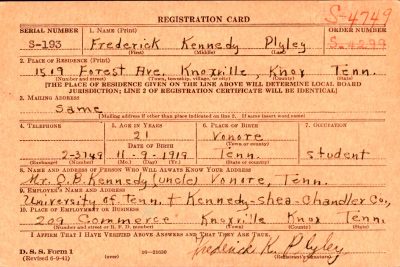 REGISTRATION CARD
S-4749
SERIAL NUMBER 1. NAME (Print) ORDER NUMBER
S-193 Frederick Kennedy Plyley S-4299
(First) (Middle) (Last)
2. PLACE OF RESIDENCE (Print)
1519 Forest Ave. Knoxville, Knox Tenn.
(Number and street) (Town, township, village, or city) (County) (State)
[THE PLACE OF RESIDENCE GIVEN ON THE LINE ABOVE WILL DETERMINE LOCAL BOARD
JURISDICTION; LINE 2 OF REGISTRATION CERTIFICATE WILL BE IDENTICAL]
3. MAILING ADDRESS
Same
[Mailing address if other than place indicated on line 2. If same insert word same]
4. TELEPHONE 5. AGE IN YEARS 6. PLACE OF BIRTH 7. OCCUPATION
21 Vonore
DATE OF BIRTH (Town or county)
2-3749 11-9-1919 Tenn. Student
(Exchange) (Number) (Mo.) (Day) (Yr.) (State or country)
8. NAME AND ADDRESS OF PERSON WHO WILL ALWAYS KNOW YOUR ADDRESS
Mr. O.B. Kennedy (uncle) Vonore, Tenn.
9. EMPLOYER'S NAME AND ADDRESS
University of Tenn. + Kennedy-Shea-Chandler Co.,
10. PLACE OF EMPLOYMENT OR BUSINESS
209 Commerce Knoxville Knox Tenn.
(Number and street or R. F. D. number) (Town) (County) (State)
I AFFIRM THAT I HAVE VERIFIED ABOVE ANSWERS AND THAT THEY ARE TRUE.
D. S. S. Form 1 Frederick K. Plyley
(Revised 6-9-41) (over) 16-21630